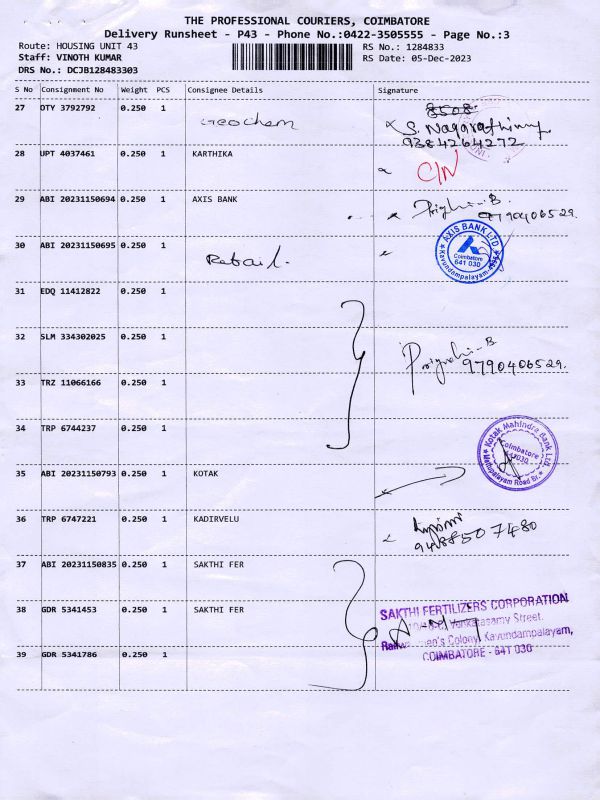 THE PROFESSIONAL COURIERS, COIMBATORE
Delivery Runsheet - P43 - Phone No.:0422-3505555 - Page No.:3
Route: HOUSING UNIT 43 RS No.: 1284833
Staff: VINOTH KUMAR RS Date: 05-Dec-2023
DRS No.: DCJB128483303
S No Consignment No Weight PCS Consignee Details Signature
27 OTY 3792792 0.250 1 Geochem 8508
S. Nagarathinam
9384264272
28 UPT 4037461 0.250 1 KARTHIKA C/N
29 ABI 20231150694 0.250 1 AXIS BANK
9790406529.
30 ABI 20231150695 0.250 1 Retail.
AXIS BANK LTD
Coimbatore
641 030
Kavundampalayam
31 EDQ 11412822 0.250 1
32 SLM 334302025 0.250 1
9790406529.
33 TRZ 11066166 0.250 1
34 TRP 6744237 0.250 1
Kotak Mahindra Bank Ltd
Coimbatore
Mettupalayam Road Br.
35 ABI 20231150793 0.250 1 KOTAK
36 TRP 6747221 0.250 1 KADIRVELU
9488507480
37 ABI 20231150835 0.250 1 SAKTHI FER
38 GDR 5341453 0.250 1 SAKTHI FER
SAKTHI FERTILIZERS CORPORATION
Venkatasamy Street.
Colony, Kavundampalayam,
COIMBATORE - 641 030
39 GDR 5341786 0.250 1